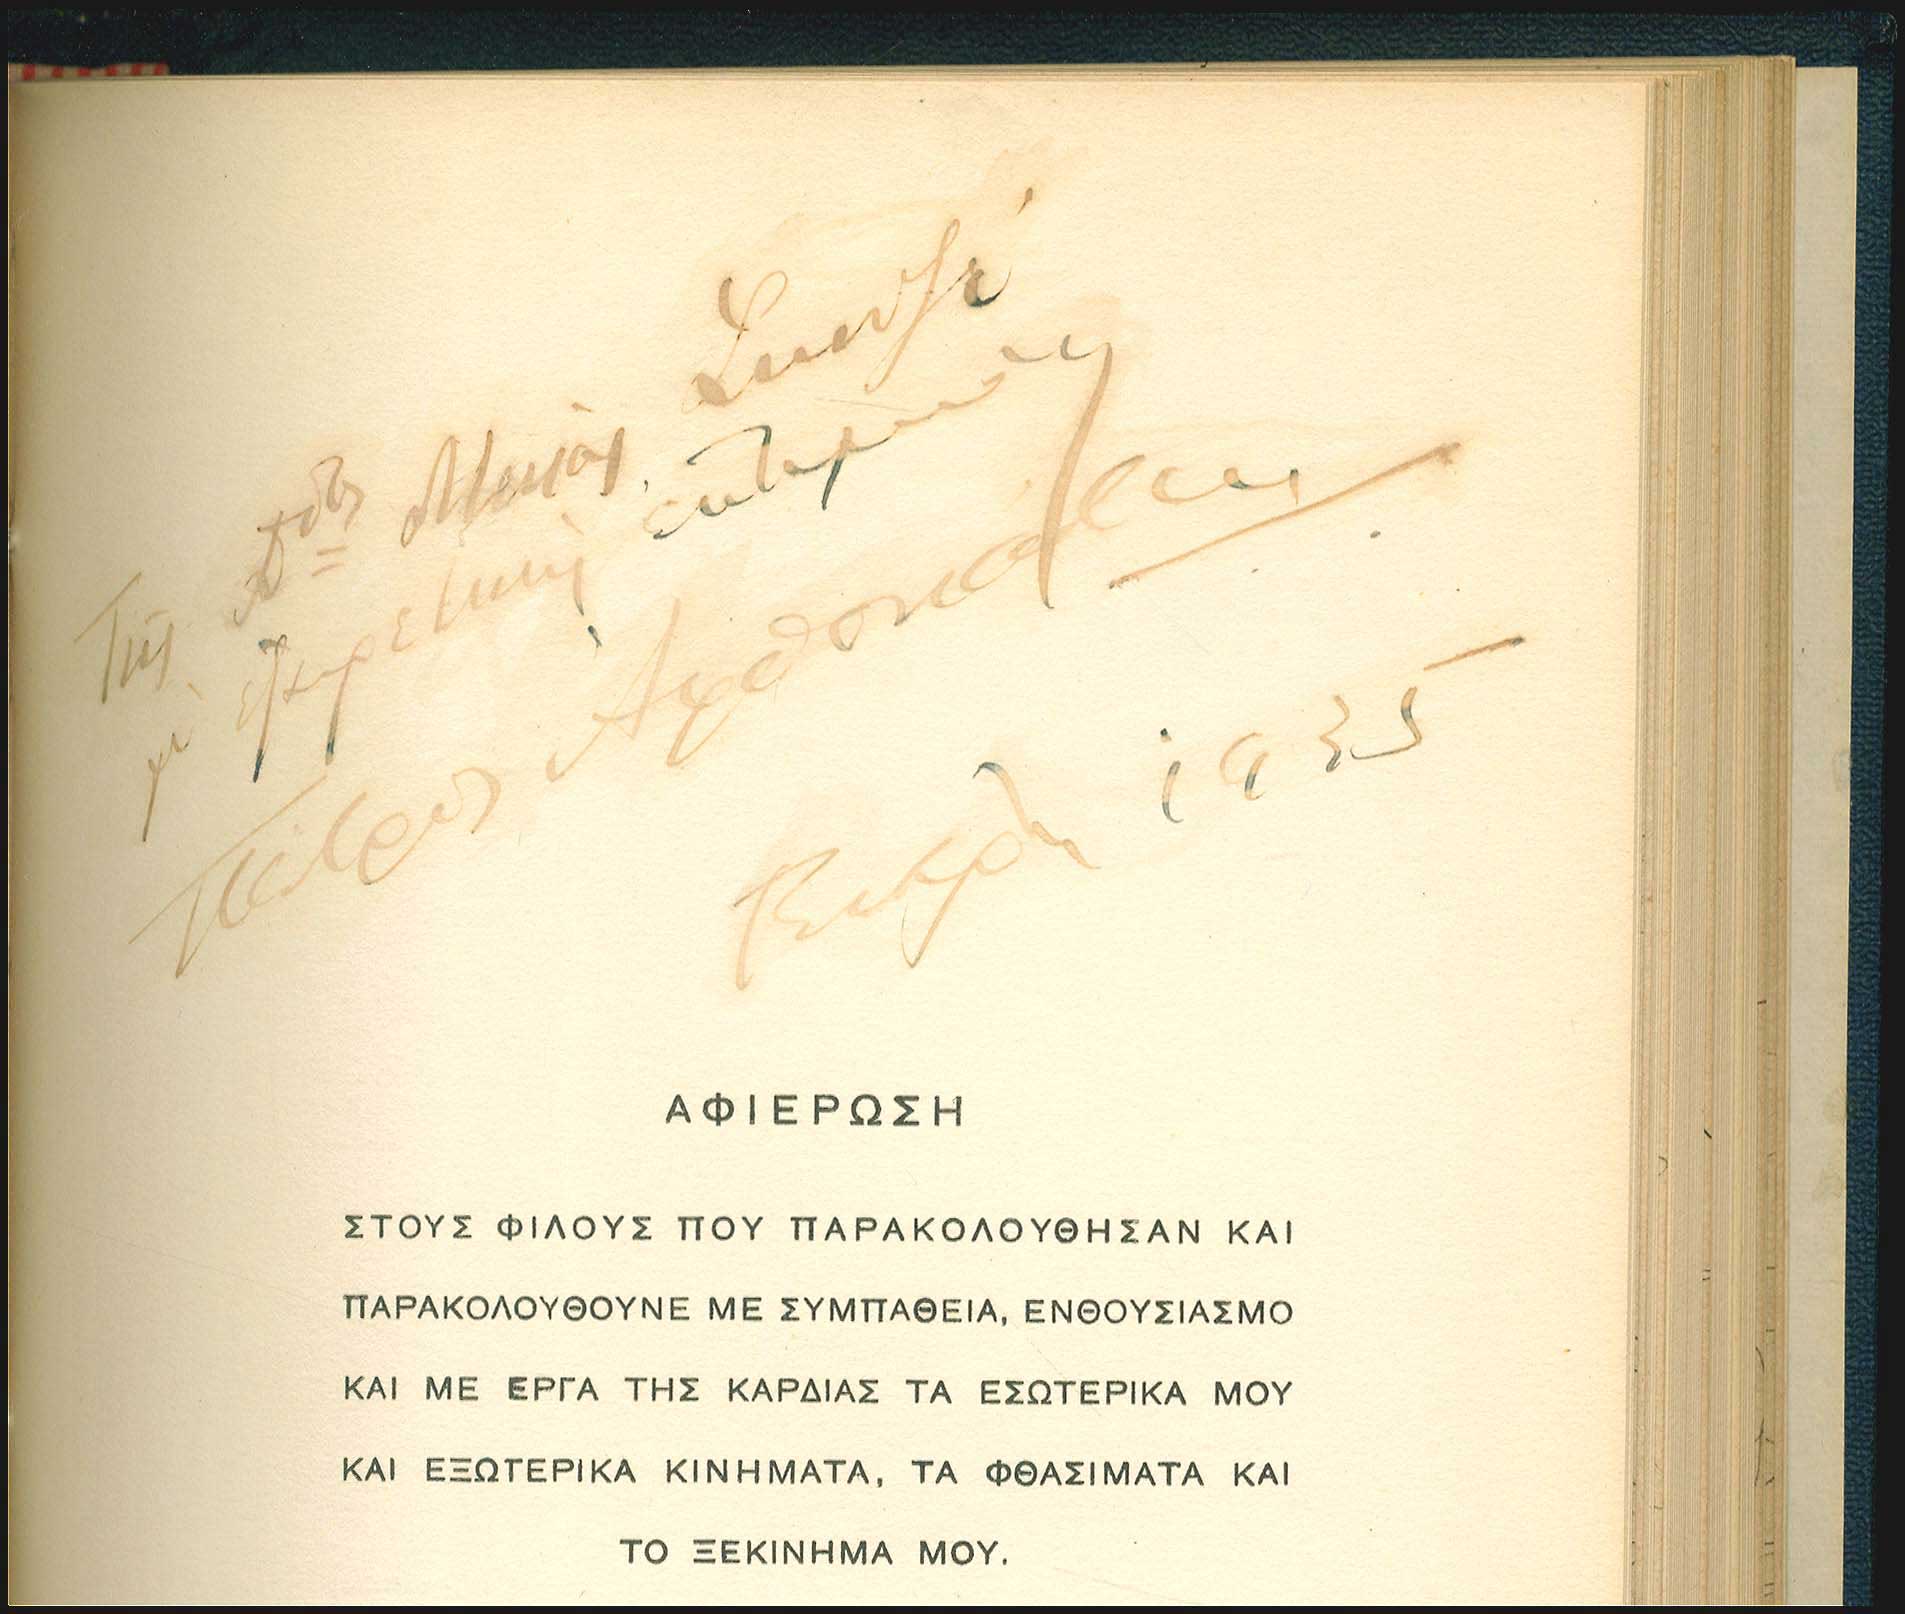 Τῆς Δδος Μαριὰς Σκουζέ
μὲ ἐξαιρετικὴ ἐκτίμηση
Πέτρος Αφθονιάτης
1935
ΑΦΙΕΡΩΣΗ
ΣΤΟΥΣ ΦΙΛΟΥΣ ΠΟΥ ΠΑΡΑΚΟΛΟΥΘΗΣΑΝ ΚΑΙ
ΠΑΡΑΚΟΛΟΥΘΟΥΝΕ ΜΕ ΣΥΜΠΑΘΕΙΑ, ΕΝΘΟΥΣΙΑΣΜΟ
ΚΑΙ ΜΕ ΕΡΓΑ ΤΗΣ ΚΑΡΔΙΑΣ ΤΑ ΕΣΩΤΕΡΙΚΑ ΜΟΥ
ΚΑΙ ΕΞΩΤΕΡΙΚΑ ΚΙΝΗΜΑΤΑ, ΤΑ ΦΘΑΣΙΜΑΤΑ ΚΑΙ
ΤΟ ΞΕΚΙΝΗΜΑ ΜΟΥ.